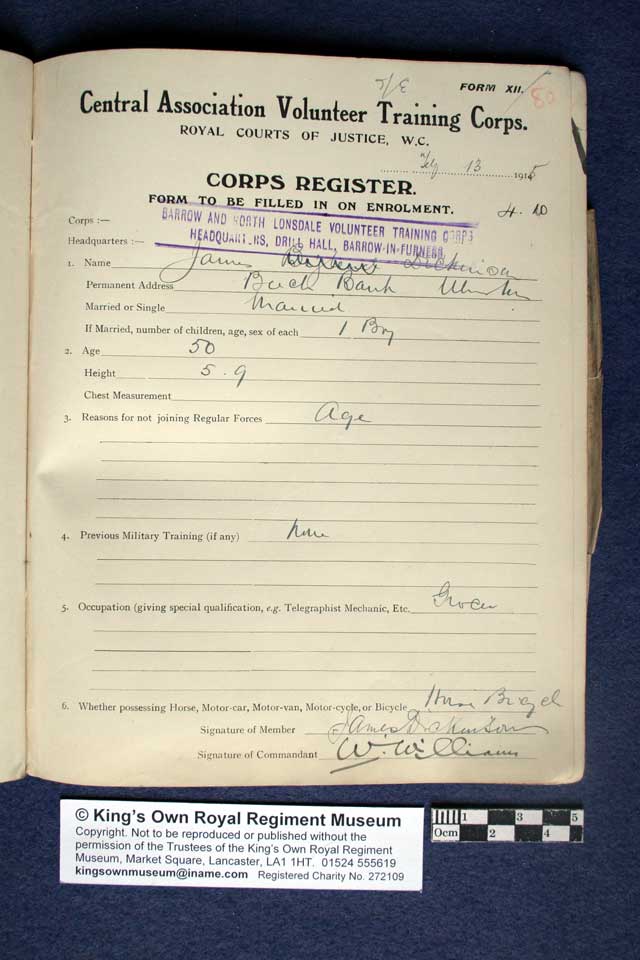 FORM XII.
80
Central Association Volunteer Training Corps.
ROYAL COURTS OF JUSTICE, W.C.
Feb 13 1915
CORPS REGISTER.
FORM TO BE FILLED IN ON ENROLMENT.
Corps :—
BARROW AND NORTH LONSDALE VOLUNTEER TRAINING CORPS
Headquarters :—
HEADQUARTERS, DRILL HALL, BARROW-IN-FURNESS
1. Name James Dickinson
Permanent Address Birch Bank Ulverston
Married or Single Married
If Married, number of children, age, sex of each 1 Boy
2. Age 50
Height 5.9
Chest Measurement
3. Reasons for not joining Regular Forces Age
4. Previous Military Training (if any) None
5. Occupation (giving special qualification, e.g. Telegraphist Mechanic, Etc. Grocer
6. Whether possessing Horse, Motor-car, Motor-van, Motor-cycle, or Bicycle Horse Bicycle
Signature of Member James Dickinson
Signature of Commandant W. Williams
© King's Own Royal Regiment Museum
Copyright. Not to be reproduced or published without the
permission of the Trustees of the King's Own Royal Regiment
Museum, Market Square, Lancaster, LA1 1HT. 01524 555619
kingsownmuseum@iname.com Registered Charity No. 272109
1 3 5
0cm 2 4